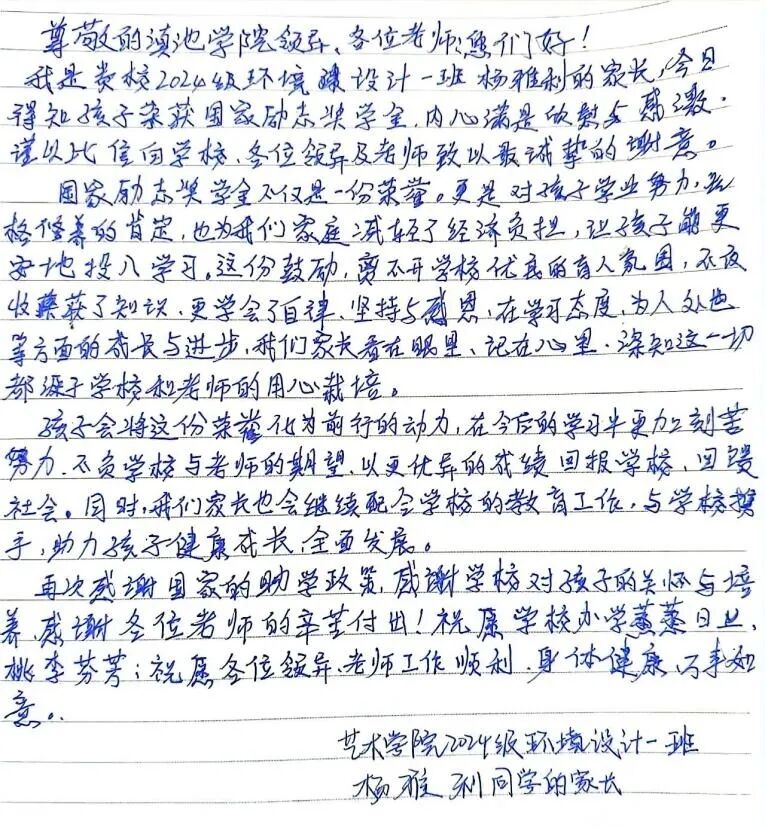 尊敬的滇池学院领导、各位老师:您们好！
我是贵校2024级环境设计一班杨雅利的家长,今日
得知孩子荣获国家励志奖学金,内心满是欣慰与感激.
谨以此信向学校、各位领导及老师致以最诚挚的谢意。
国家励志奖学金不仅是一份荣誉。更是对孩子学业努力,品
格修养的肯定,也为我们家庭减轻了经济负担,让孩子能更
安地投入学习。这份鼓励,离不开学校优良的育人氛围,不仅
收获了知识、更学会了自律、坚持与感恩,在学习态度、为人处世
等方面的成长与进步,我们家长看在眼里、记在心里.深知这一切
都源于学校和老师的用心栽培。
孩子会将这份荣誉化为前行的动力,在今后的学习中更加刻苦
努力.不负学校与老师的期望,以更优异的成绩回报学校、回馈
社会。同时,我们家长也会继续配合学校的教育工作,与学校携
手,助力孩子健康成长,全面发展。
再次感谢国家的助学政策,感谢学校对孩子的关怀与培
养,感谢各位老师的辛苦付出！祝愿学校办学蒸蒸日上、
桃李芬芳;祝愿各位领导、老师工作顺利.身体健康,万事如
意。.
艺术学院2024级环境设计一班
杨雅利同学的家长